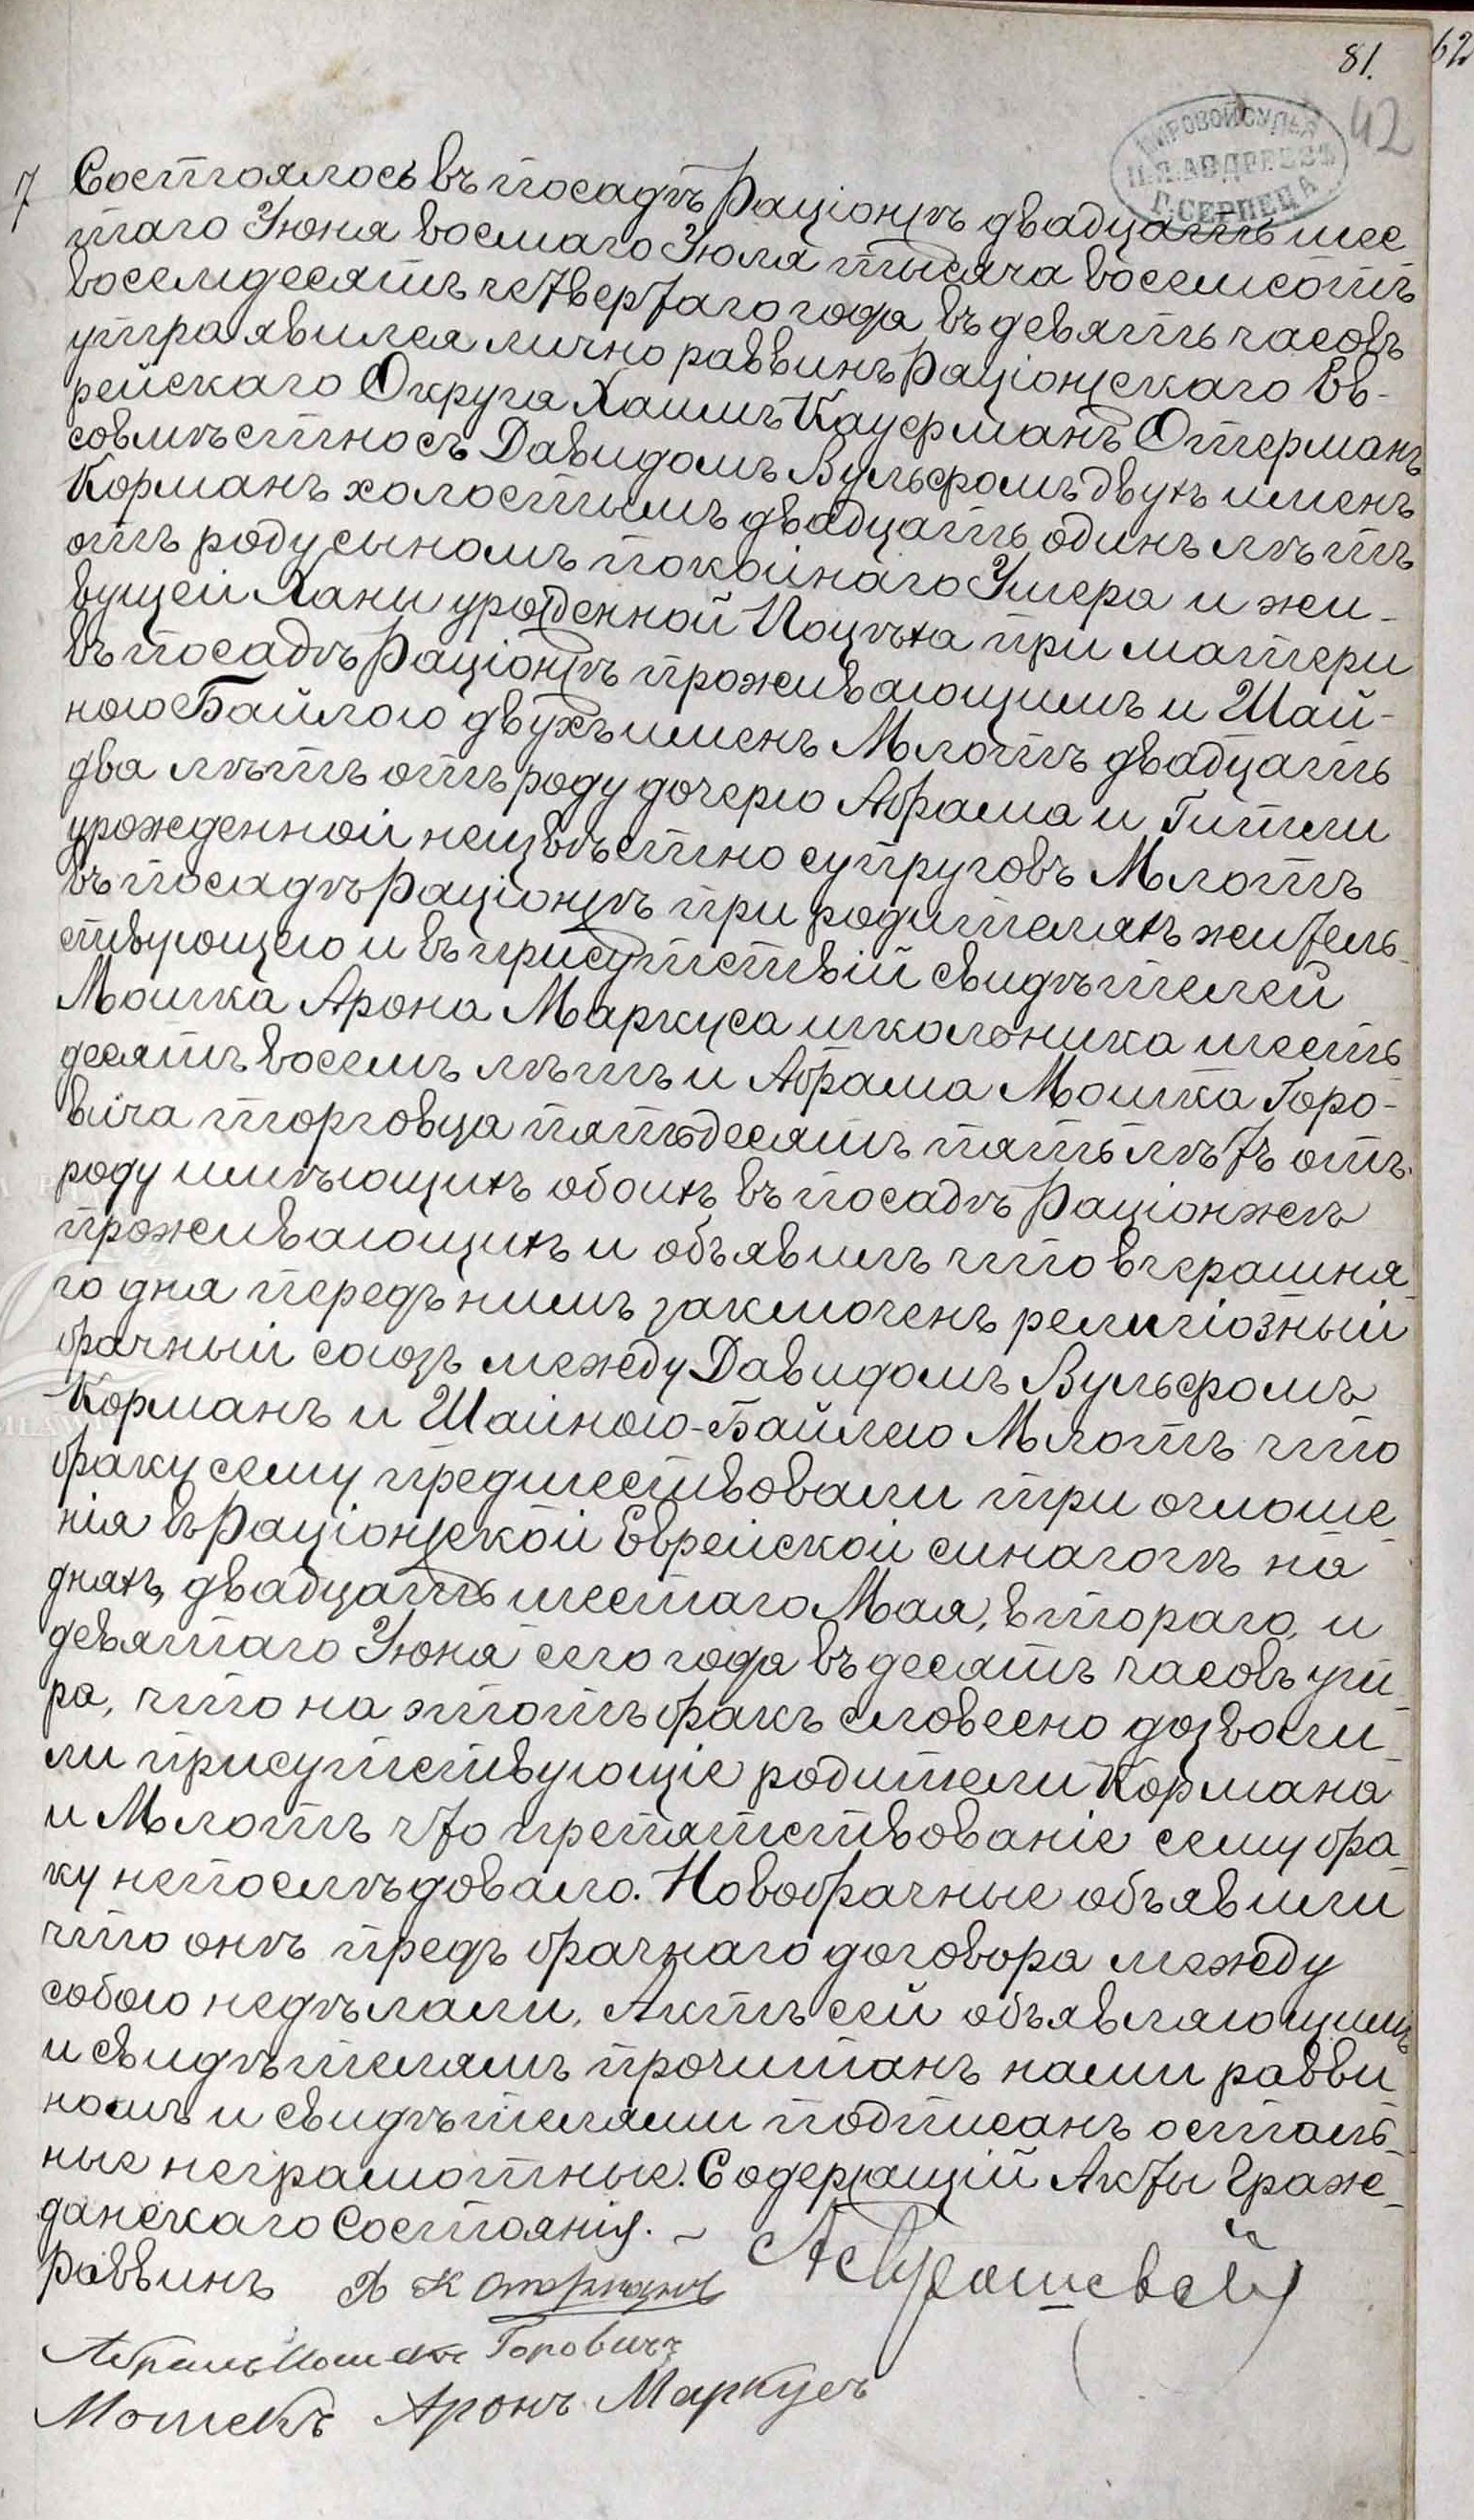 81.
62
42
МИРОВОЙ СУДЬЯ
Г. СЕРПЕЦА
7 Состоялось въ посадѣ Раціонжѣ двадцать шес
таго Іюня восмаго Іюля тысяча восемсотъ
восемдесятъ четвертаго года въ девять часовъ
утра явился лично раввинъ Раціонжскаго Ев-
рейскаго Округа Хаимъ Кауфманъ Отерманъ
совмѣстно съ Давидомъ Вульфомъ двухъ именъ
Корманъ холостымъ двадцать одинъ лѣтъ
отъ роду сыномъ покойнаго Умера и жи-
вущей Ханы урожденной Поцѣха при матери
въ посадѣ Раціонжѣ проживающимъ и Шай-
ною Байлою двухъ именъ Млотъ двадцать
два лѣтъ отъ роду дочерю Абрама и Гитли
урожденной неизвѣстно супруговъ Млотъ
въ посадѣ Раціонжѣ при родителяхъ житель-
ствующею и въ присутствій свидѣтелей
Мошка Арона Маркуса школьника шесть
десятъ восемъ лѣтъ и Абрама Мошка Горо-
вича торговца пятьдесятъ пять лѣтъ отъ
роду имѣющихъ обоихъ въ посадѣ Раціонжѣ
проживающихъ и объявилъ что вчерашня-
го дня передъ нимъ заключенъ религіозный
брачный союзъ между Давидомъ Вульфомъ
Корманъ и Шайною-Байлею Млотъ что
браку сему предшествовали три оглоше-
нія въ Раціонжской Еврейской синагогѣ на
дняхъ, двадцать шестаго Мая, втораго, и
девятаго Іюня сего года въ десятъ часовъ ут-
ра, что на этотъ бракъ словесно дозволи-
ли присутствующіе родители Кормана
и Млотъ что препятствованіе сему бра-
ку непослѣдовало. Новобрачные объявили
что онѣ предъ брачнаго договора между
собою недѣлали, Актъ сей объявляющимъ
и свидѣтелямъ прочитанъ нами равви
номъ и свидѣтелями подписанъ осталь-
ные неграмотные. Содержащій Акты Граж-
данскаго Состоянія. ~
Раввинъ Х К Отерманъ
Абрамъ Мошекъ Горовичъ
Мошекъ Аронъ Маркусъ